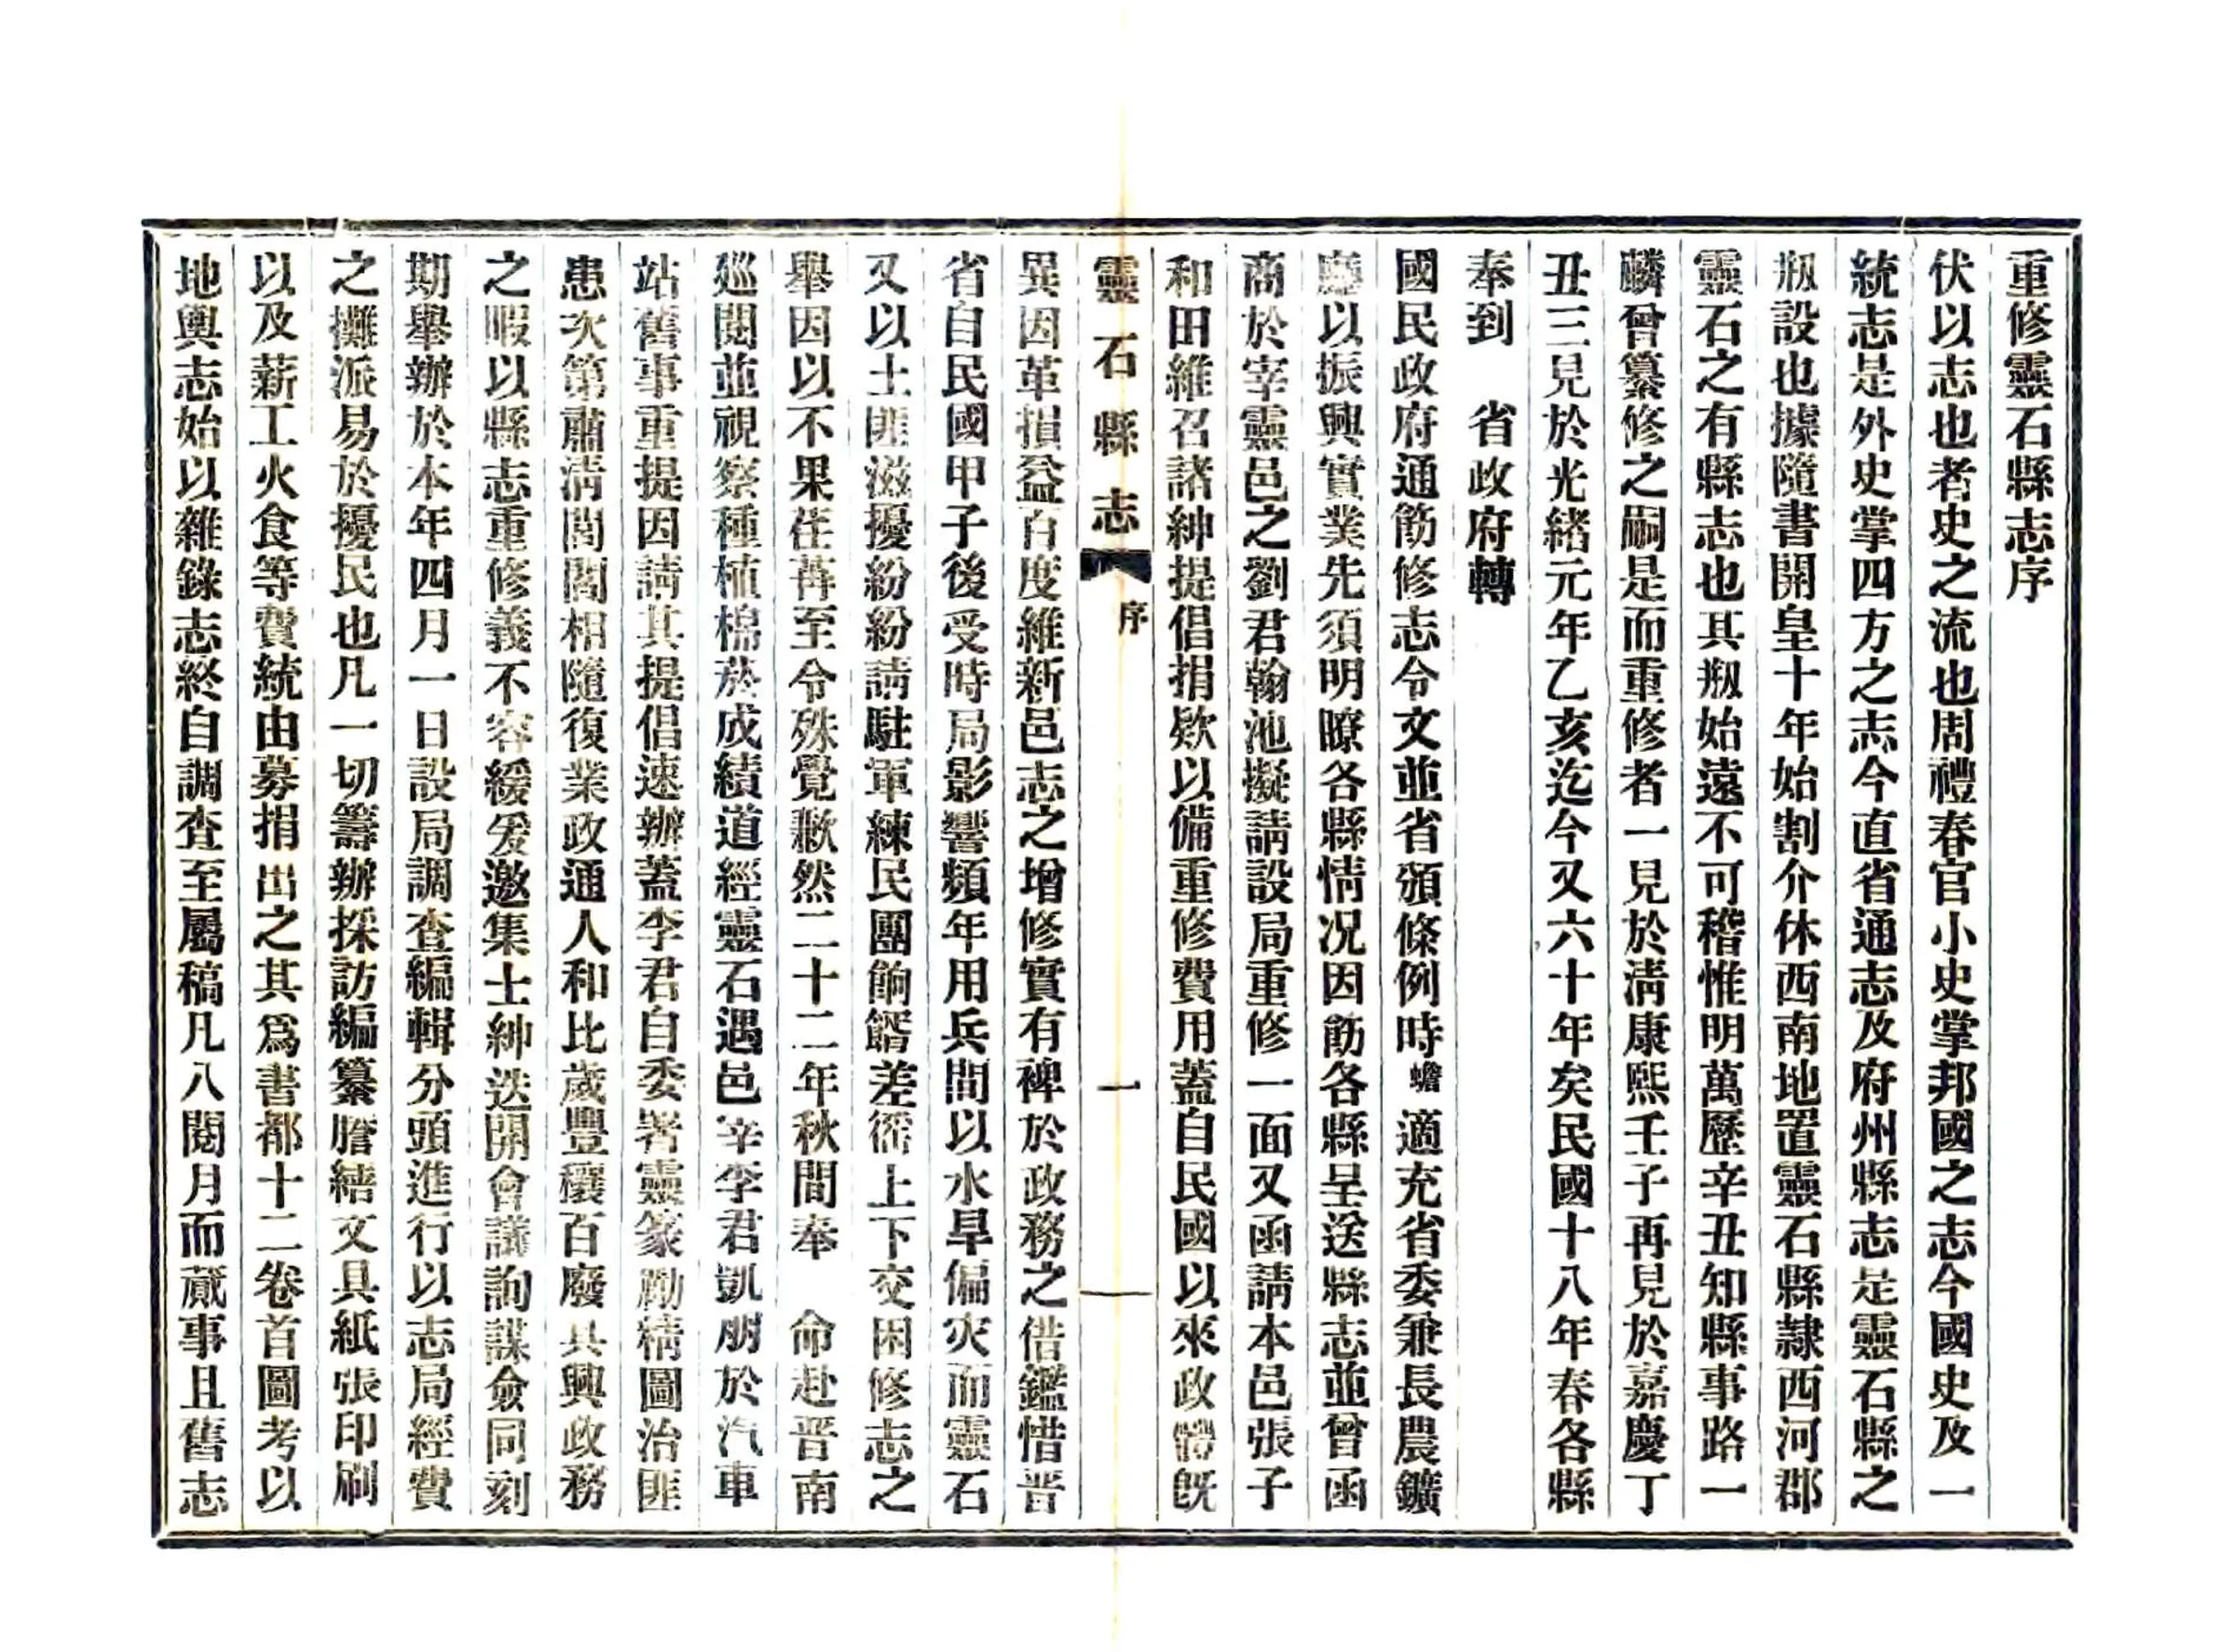 重修靈石縣志序
伏以志也者史之流也周禮春官小史掌邦國之志今國史及一
統志是外史掌四方之志今直省通志及府州縣志是靈石縣之
剏設也據隨書開皇十年始割介休西南地置靈石縣隸西河郡
靈石之有縣志也其剏始遠不可稽惟明萬歷辛丑知縣事路一
麟曾纂修之嗣是而重修者一見於淸康熙壬子再見於嘉慶丁
丑三見於光緒元年乙亥迄今又六十年矣民國十八年春各縣
奉到　省政府轉
國民政府通飭修志令文並省頒條例時蟾適充省委兼長農鑛
廳以振興實業先須明瞭各縣情况因飭各縣呈送縣志並曾函
商於宰靈邑之劉君翰池擬請設局重修一面又函請本邑張子
和田維召諸紳提倡捐欵以備重修費用蓋自民國以來政體旣
靈石縣志　序　一
異因革損益百度維新邑志之增修實有裨於政務之借鑑惜晋
省自民國甲子後受時局影響頻年用兵間以水旱偏灾而靈石
又以土匪滋擾紛紛請駐軍練民團餉糈差徭上下交困修志之
舉因以不果荏苒至今殊覺歉然二十二年秋間奉　命赴晋南
巡閱並視察種植棉菸成績道經靈石遇邑宰李君凱朋於汽車
站舊事重提因請其提倡速辦蓋李君自委署靈篆勵精圖治匪
患次第肅淸閭閻相隨復業政通人和比歲豐穰百廢具興政務
之暇以縣志重修義不容緩爰邀集士紳迭開會議詢謀僉同刻
期舉辦於本年四月一日設局調查編輯分頭進行以志局經費
之攤派易於擾民也凡一切籌辦採訪編纂謄繕文具紙張印刷
以及薪工火食等費統由募捐出之其爲書都十二卷首圖考以
地輿志始以雜錄志終自調查至屬稿凡八閱月而蕆事且舊志